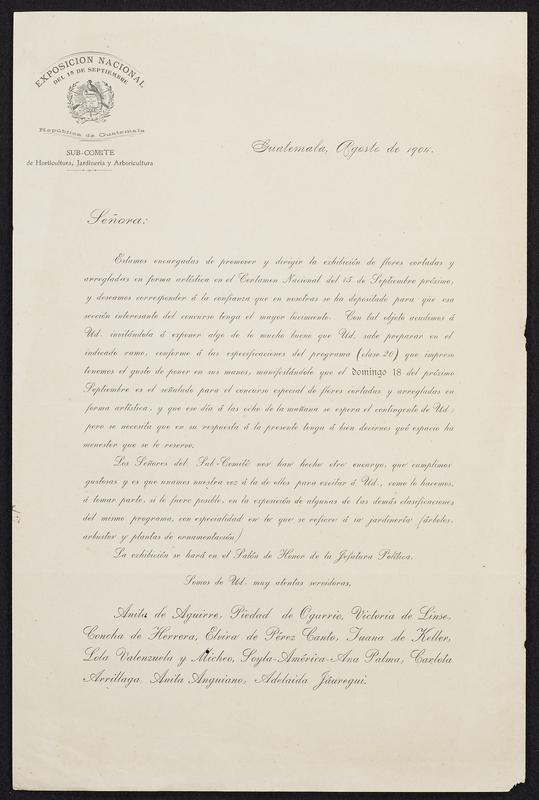 EXPOSICION NACIONAL
DEL 15 DE SEPTIEMBRE
República de Guatemala
SUB-COMITE
de Horticultura, Jardinería y Arboricultura
Guatemala, Agosto de 1904.
Señora:
Estamos encargadas de promover y dirigir la exhibición de flores cortadas y
arregladas en forma artística en el Certamen Nacional del 15 de Septiembre próximo,
y deseamos corresponder á la confianza que en nosotras se ha depositado para que esa
sección interesante del concurso tenga el mayor lucimiento. Con tal objeto acudimos á
Ud. invitándola á exponer algo de lo mucho bueno que Ud. sabe preparar en el
indicado ramo, conforme á las especificaciones del programa (clase 20) que impreso
tenemos el gusto de poner en sus manos, manifestándole que el domingo 18 del próximo
Septiembre es el señalado para el concurso especial de flores cortadas y arregladas en
forma artística, y que ese día á las ocho de la mañana se espera el contingente de Ud;
pero se necesita que en su respuesta á la presente tenga á bien decirnos qué espacio ha
menester que se le reserve.
Los Señores del Sub-Comité nos han hecho otro encargo, que cumplimos
gustosas y es que unamos nuestra voz á la de ellos para excitar á Ud., como lo hacemos,
á tomar parte, si le fuere posible, en la exposición de algunas de las demás clasificaciones
del mismo programa, con especialidad en lo que se refiere á la jardinería (árboles,
arbustos y plantas de ornamentación)
La exhibición se hará en el Salón de Honor de la Jefatura Política.
Somos de Ud. muy atentas servidoras,
Anita de Aguirre, Piedad de Ogarrio, Victoria de Linse,
Concha de Herrera, Elvira de Pérez Canto, Juana de Keller,
Lola Valenzuela y Micheo, Soyla-América-Ana Palma, Carlota
Arrillaga Anita Anguiano, Adelaida Jáuregui.